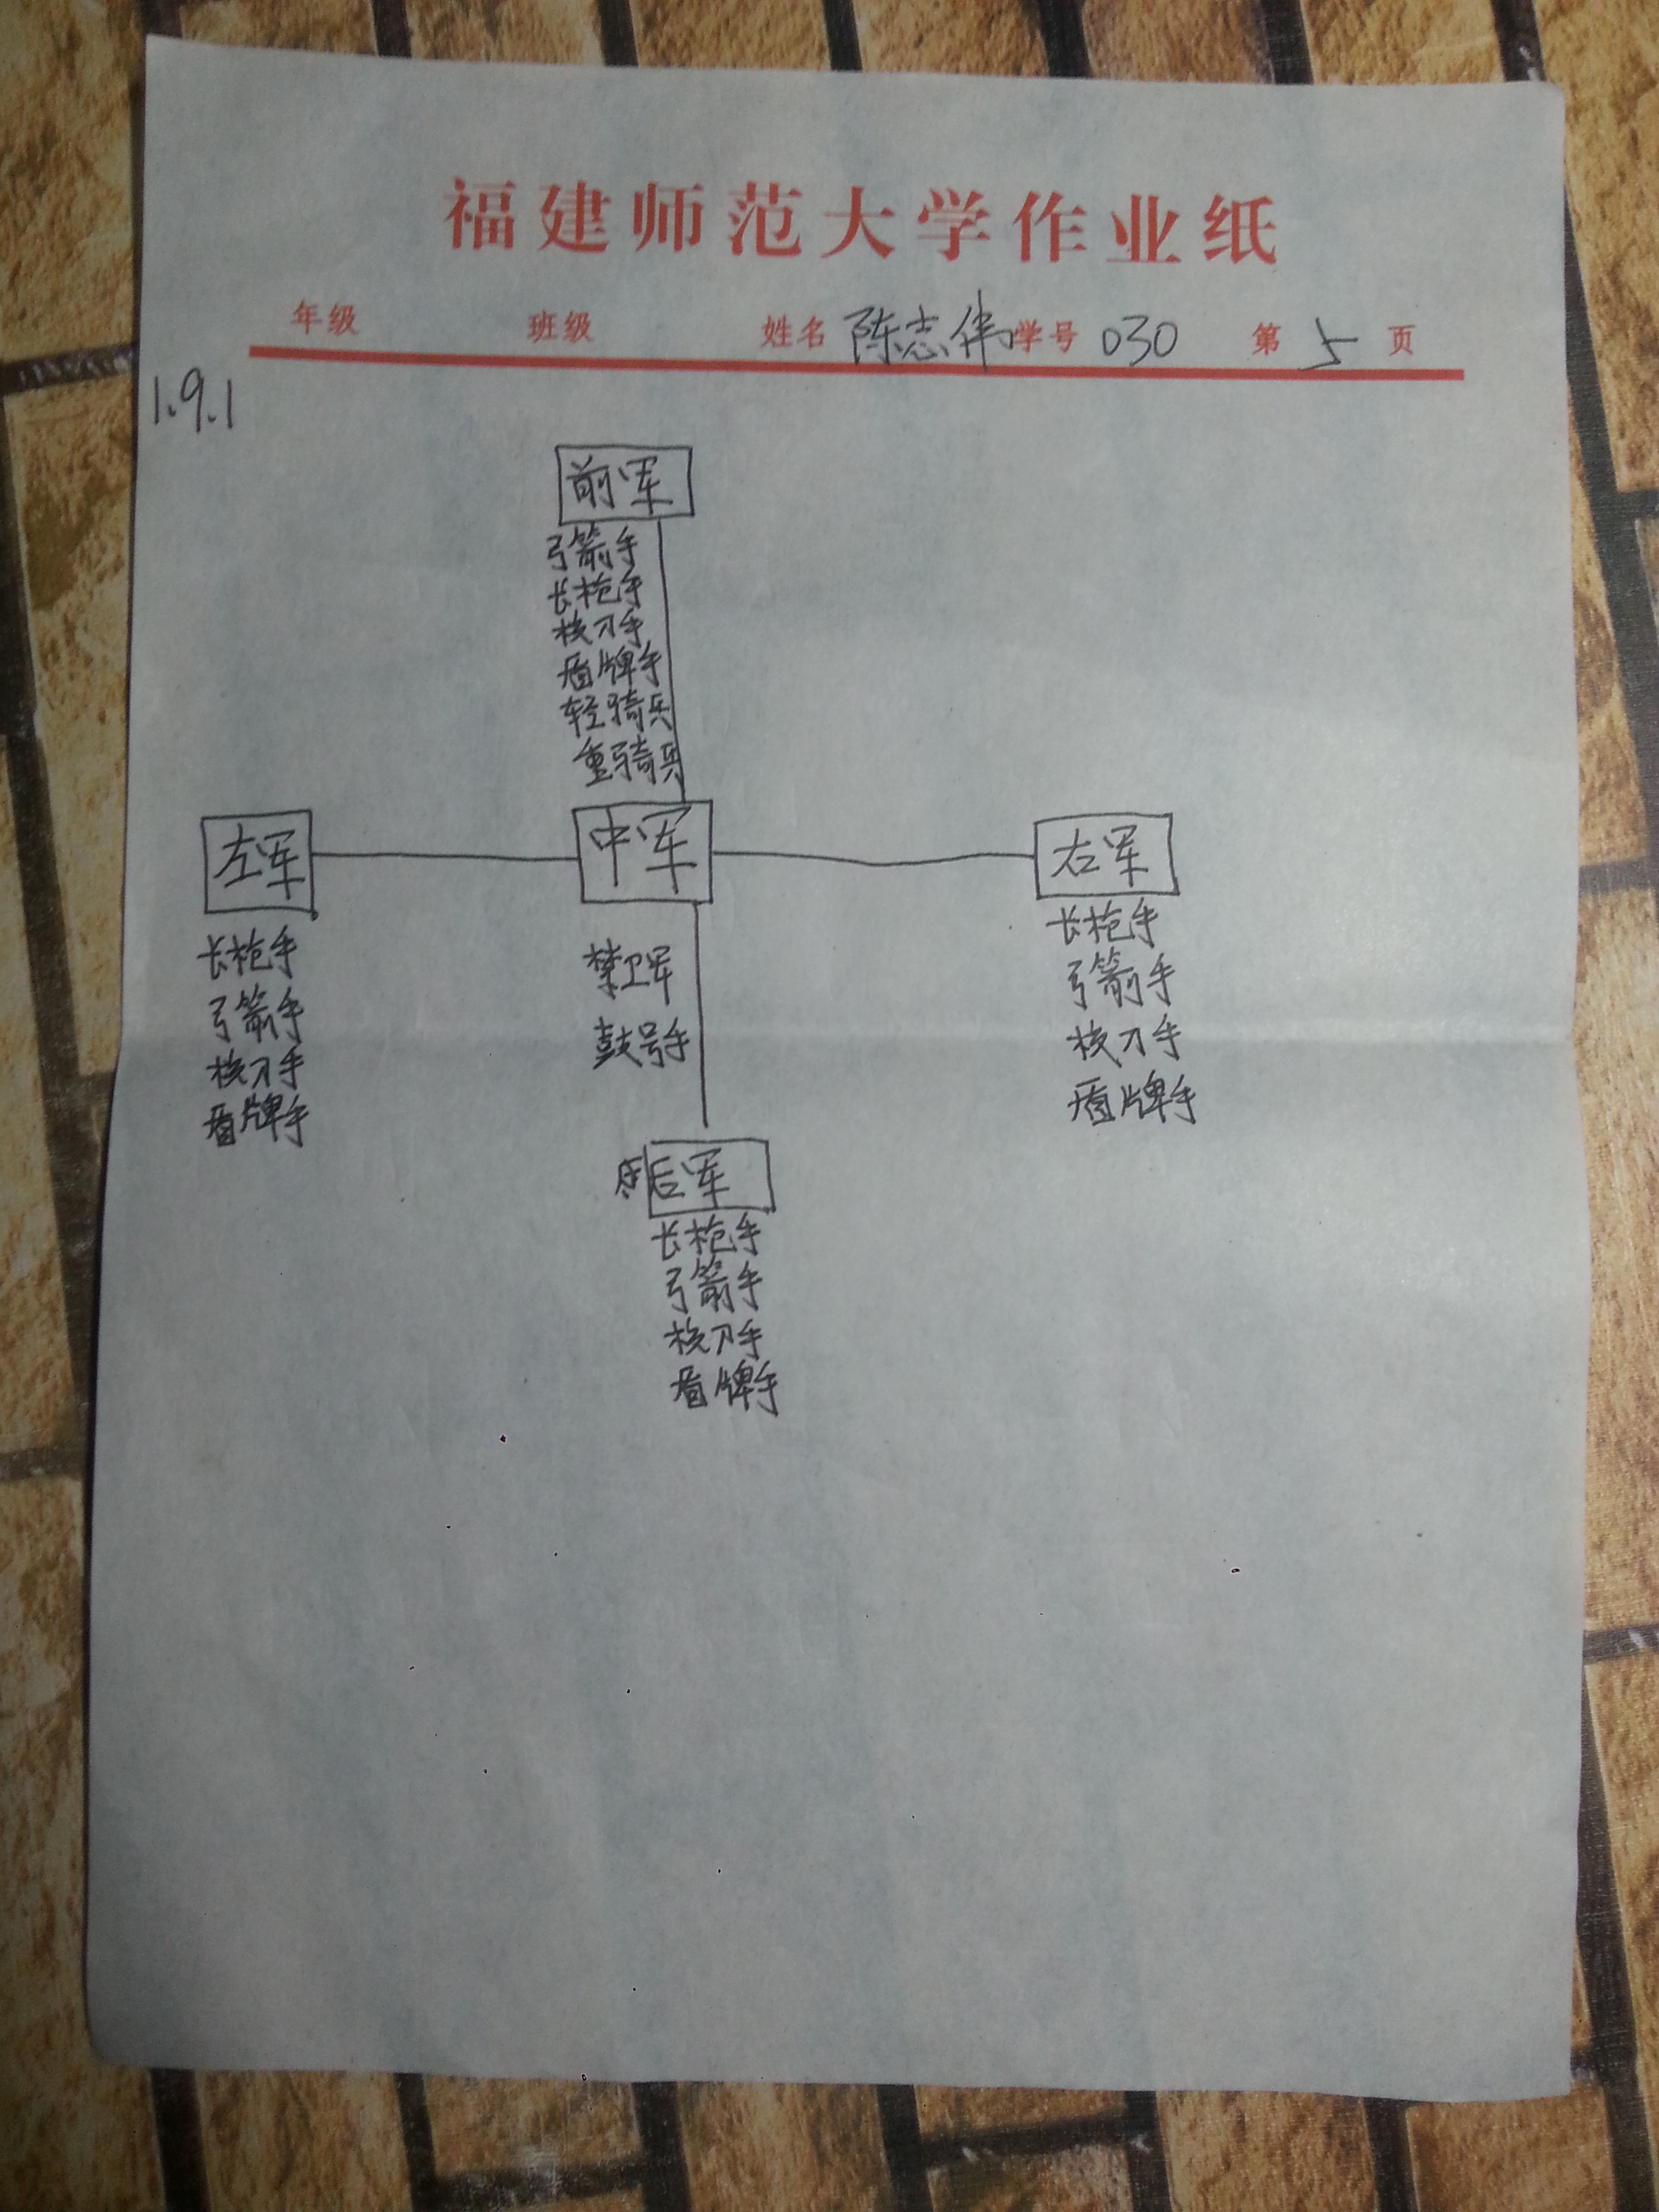 福建师范大学作业纸
年级 班级 姓名 陈志伟 学号 030 第 5 页
1.9.1
前军
弓箭手
长枪手
校刀手
盾牌手
轻骑兵
重骑兵
左军 中军 右军
长枪手
弓箭手
校刀手
盾牌手
禁卫军
鼓号手
长枪手
弓箭手
校刀手
盾牌手
后军
长枪手
弓箭手
校刀手
盾牌手